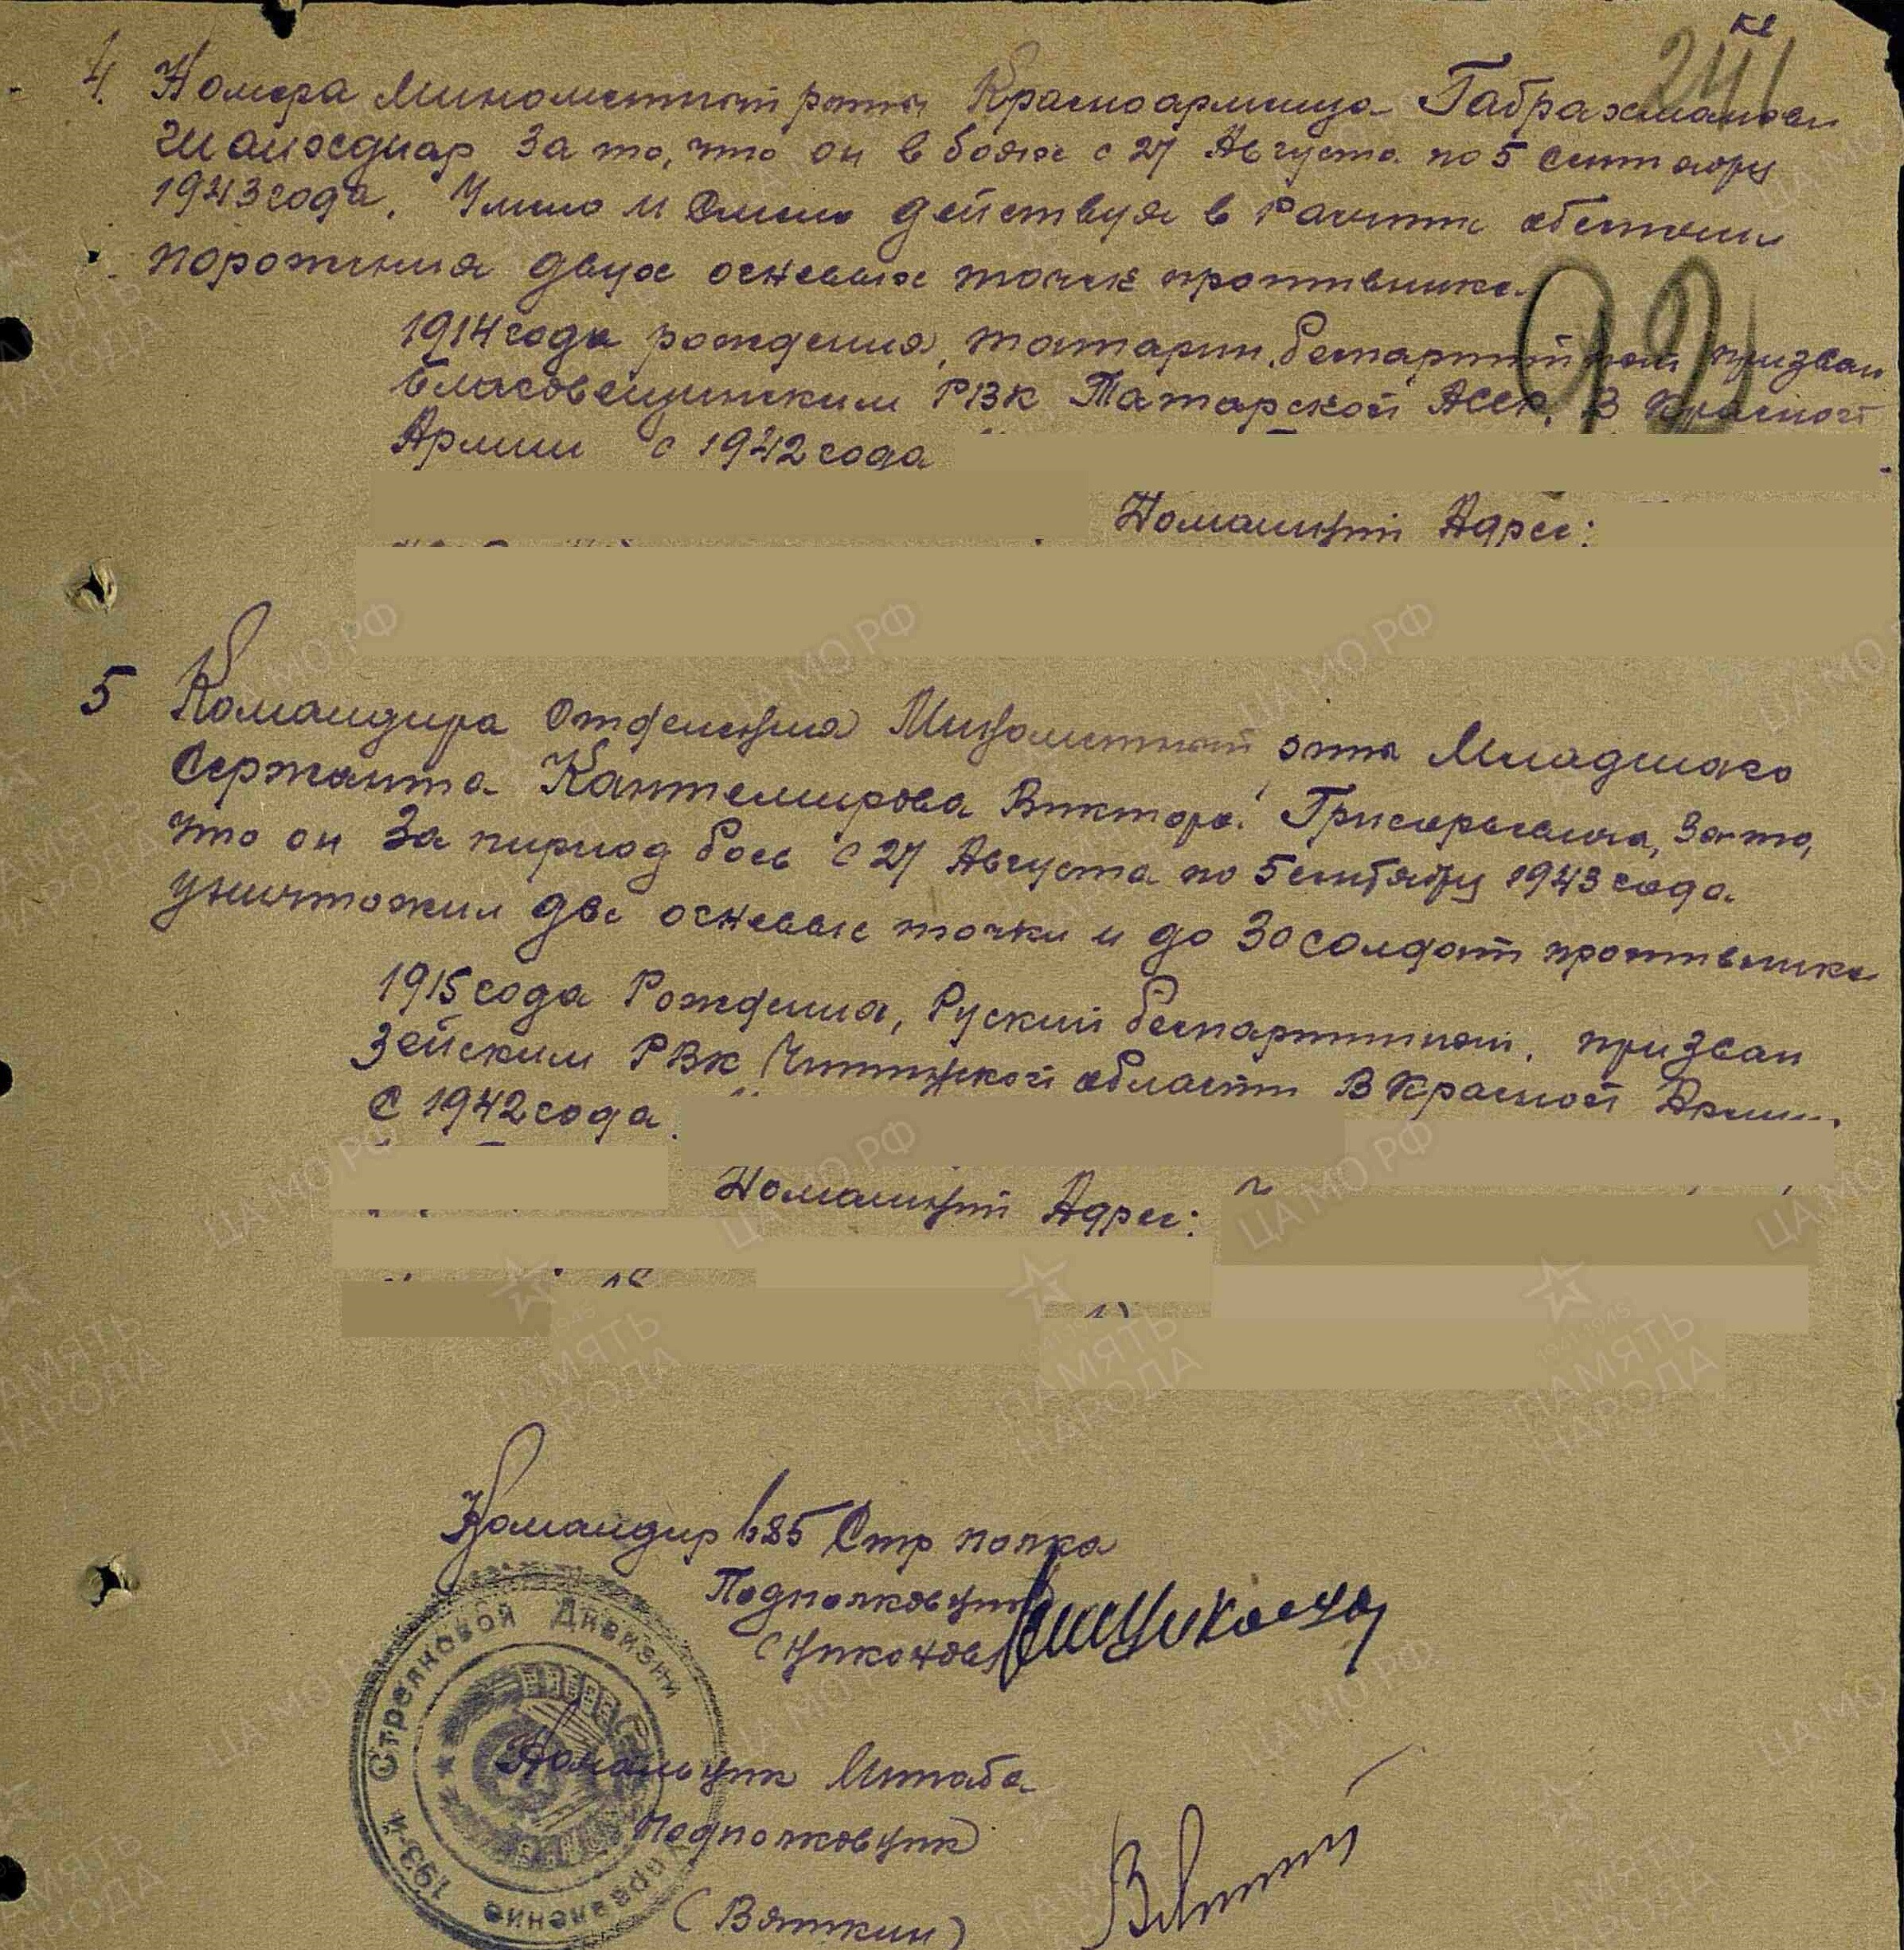 241
4. Номера Минометной роты Красноармейца Габрахманова
за то, что он в боях с 27 Августа по 5 Сентября
1943 года. Умело и Смело действуя в Расчете обеспечил
поражения двух огневых точек противника.
92
1914 года рождения, татарин, беспартийный призван
Благовещинским РВК Татарской АССР. В Красной
Армии с 1942 года
Домашний Адрес:
5 Командира Отделения Минометной роты Младшего
Сержанта Кантемирова Виктора Григорьевича, За то,
что он За период боев с 27 Августа по 5 сентября 1943 года.
уничтожил две огневые точки и до 30 солдат противника
1915 года Рождения, Руский беспартийный, призван
Зейским РВК Читинской области В Красной Армии
С 1942 года.
Домашний Адрес:
Командир 685 Стр полка
Подполковник
(Никонов)
Начальник Штаба
Подполковник
(Вяткин)
193-й Стрелковой Дивизии
Управление
ЦА МО РФ
ПАМЯТЬ
НАРОДА
1941 1945